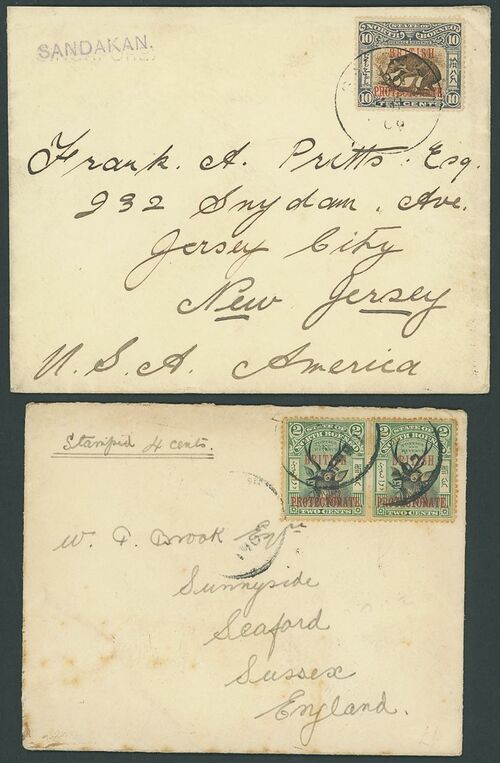 SANDAKAN.
STATE OF
NORTH BORNEO
BRITISH
PROTECTORATE.
10 10
TEN CENTS
09
Frank. A. Pritts. Esq.
232 Snydam. Ave.
Jersey City
New Jersey
U.S.A. America
Stampid 4 cents.
2 STATE OF 2
NORTH BORNEO
BRITISH
PROTECTORATE.
TWO CENTS
2 STATE OF 2
NORTH BORNEO
BRITISH
PROTECTORATE.
TWO CENTS
W. P. Brook Esqre
Sunnyside
Seaford
Sussex
England.